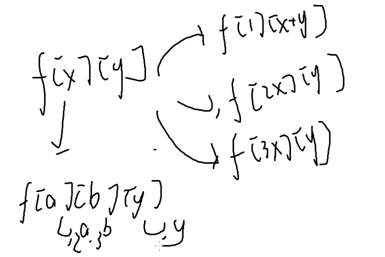 f[x][y]
f[1][x+y]
f[2x][y]
f[3x][y]
f[a][b][y]
2^a·3^b
y